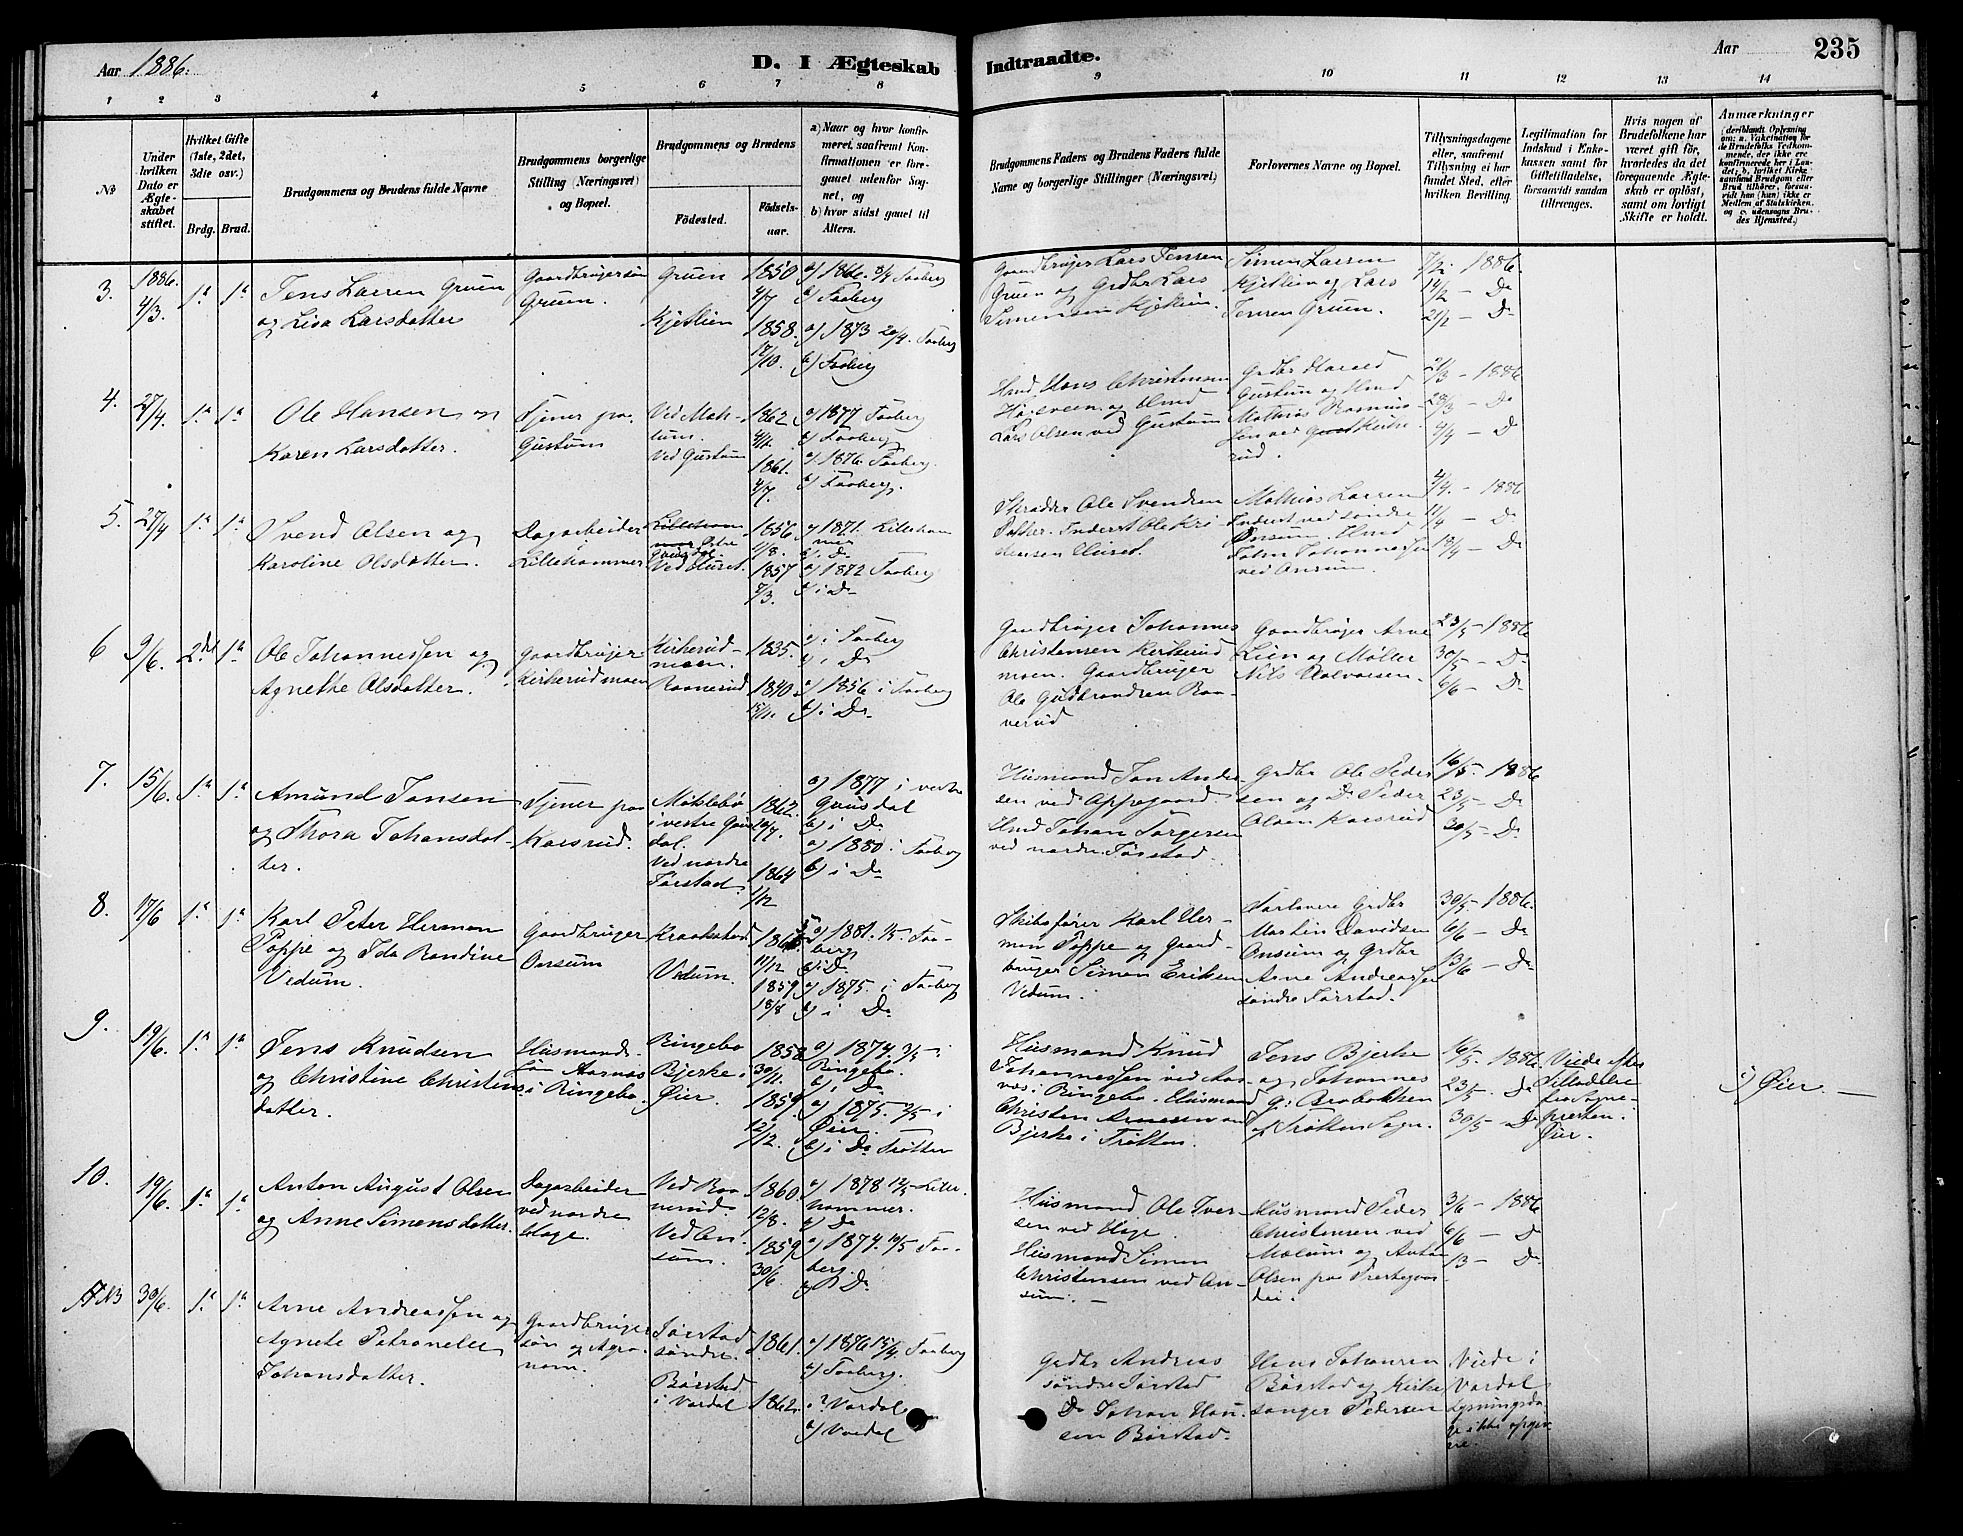 Aar 1886.
D. I Ægteskab
Indtraadte.
Aar
235
1 2 3 4 5 6 7 8 9 10 11 12 13 14
No
Under hvilken Dato er Ægteskabet stiftet.
Hvilket Gifte (1ste, 2det, 3die osv.)
Brdg. Brud.
Brudgommens og Brudens fulde Navne
Brudgommens borgerlige Stilling (Næringsvei) og Bopæl.
Brudgommens og Brudens
Födested.
Födselsaar.
a) Naar og hvor konfirmeret, saafremt Konfirmationen er foregaaet udenfor Sognet, og
b) hvor sidst gaaet til Alters.
Brudgommens Faders og Brudens Faders fulde Navne og borgerlige Stillinger (Næringsvei)
Forlovernes Navne og Bopæl.
Tillysningsdagene eller, saafremt Tillysning ei har fundet Sted, efter hvilken Bevilling.
Legitimation for Indskud i Enkekassen samt for Giftetilladelse, forsaavidt saadan tiltrænges.
Hvis nogen af Brudefolkene har været gift för, hvorledes da det foregaaende Ægteskab er oplöst, samt om lovligt Skifte er holdt.
Anmærkninger
(deriblandt Oplysning om: a. Vakcination for de Brudefolks Vedkommende, der ikke ere konfirmerede her i Landet; b. hvilket Kirkesamfund Brudgom eller Brud tilhörer, forsaavidt han (hun) ikke er Medlem af Statskirken, og c. udensogns Brudes Hjemsted.)
3.
1886. 4/3.
1ª 1ª
Jens Larsen Gruen
og Lisa Larsdatter
Gaardbrugersøn
Gruen.
Gruen
Kjeslien
1850 4/7
1858. 17/10.
b) Faaberg
a) 1873 20/4. Faaberg
b) Faaberg
Gaardbruger Lars Jensen
Gruen og Grdbr Lars
Simensen Kjeslien.
Simen Larsen
Kjeslien og Lars
Jensen Gruen.
7/2. 1886.
14/2 – Do
21/2 – Do
4.
27/4
1ª 1ª
Ole Hansen og
Karen Larsdatter.
Tjener paa
Gustum
Ved Gustum
1862 4/12.
1861. 4/7.
a) 1877 Faaberg
b) Faaberg
a) 1876. Faaberg.
b) Faaberg.
Hmd. Hans Christensen
Hageveen og Hmd
Lars Olsen ved Gustum
Gustum og Hmd
Mathias Rasmussen ved Kirkerud.
21/3 – 1886
28/3 – Do
9/4 – D
5.
27/4
1ª 1ª
Svend Olsen og
Karoline Olsdatter.
Dagarbeider
Lillehammer
Østre Gausdal
Ved Huset.
1856 11/8.
1857 7/3.
a) 1871. Lillehammer
b) i Do
a) 1872 Faaberg
b) i Do
Skrædder Ole Svendsen
Inderst Ole Kristensen Huset.
Mathias Larsen
Inderst ved søndre
Onsum. Hmd
John Johannessen
ved Onsum.
4/4. – 1886
11/4 – Do
18/4 – Do
6
9/6.
2det 1ª
Ole Johannessen og
Agnethe Olsdatter.
Gaardbruger
Kirkerudmoen
Kirkerudmoen.
Roanerud
1835.
1840 15/11.
a) i Faaberg
b) i Do
a) 1856 i Faaberg
b) i Do
Gaardbruger Johannes
Christensen Kirkerudmoen. Gaardbruger
Ole Gudbrandsen Roanerud
Gaardbruger Arne
Lien og Møller
Nils Halvorsen.
23/5 – 1886
30/5 – Do
6/6 – Do
7.
15/6.
1ª 1ª
Amund Jansen
og Thora Johansdatter.
Tjener paa
Korsrud.
Møklebø
i vestre Gausdal.
Ved nordre
Jørstad.
1862. 10/7.
1864 1/12
a) 1877 i vestre
Gausdal
b) i Do
a) 1880 i Faaberg
b) i Do
Husmand Jan Andersen ved Oppegaard.
Hmd Johan Torgersen
ved nordre Jørstad.
Grdbr Ole Pedersen og Do Peder
Olsen Korsrud
16/5. 1886
23/5 – Do
30/5 – Do
8.
17/6
1ª 1ª
Karl Peter Herman
Poppe og Ida Randine
Vedum.
Gaardbruger
Onsum
Kraakstad
Vedum.
11/12
1859 18/8
a) 1881. 1/5. Faaberg
b) i D.
a) 1875. i Faaberg
b) i Do
Skibsfører Karl Herman Poppe og Gaardbruger Simen Eriksen
Vedum.
Forlovere Grdbr
Martin Davidsen
Onsum og Grdbr
Arne Andreassen
søndre Jørstad.
30/5 – 1886.
6/6 – Do
13/6 – Do
9.
19/6.
1ª 1ª
Jens Knudsen
og Christine Christensdatter.
Husmandssøn Aarnæs
i Ringebo.
Ringebo
Bjerke i
Øier.
1858 30/11.
1859 12/12.
a) 1874. 3/5 i
Ringebo.
b) i Do
a) 1875. 9/5 i
Øier.
b) i Do Trøtten
Husmand Knud
Johannessen ved Aarnæs i Ringebo. Husmand
Christen Arnesen ved
Bjerke i Trøtten.
Jens Bjerke
og Johannes
G: Brobakken
af Trøtten Sogn.
16/5. 1886
23/5. – Do
30/5 – Do
Viede efter
Tilladelse
fra Sognepresten
Øier.
c) Øier. —
10.
19/6.
1ª 1ª
Anton August Olsen
og Anne Simensdatter.
Dagarbeider
ved nordre
Hage.
Ved Roanerud.
Ved Onsum.
1860. 12/8.
1859 30/6.
a) 1878 12/5 Lillehammer.
b) Do
a) 1874. 10/5 Faaberg.
b) Do
Husmand Ole Iversen ved Hage.
Husmand Simen
Christensen ved Onsum. –
Husmand Peder
Christensen ved
Molum og Anton
Olsen paa
3/6 – 1886
6/6 – Do
13 – Do
30/6.
1ª 1ª
Arne Andreassen og
Agnete Petronelle
Johansdatter.
Gaardbrugersøn og Agronom.
Jørstad
søndre.
Børstad
i Vardal
1861.
1862.
a) 1876 15/4 Faaberg
b) Faaberg.
i Vardal
b) Vardal
Grdbr Andreas
søndre Jørstad
Do Johan Hansen Børstad.
Hans Johansen
Børstad og Kirkesanger Pedersen
Viede i
Vardal
Lysningsdage ikke opgivne.